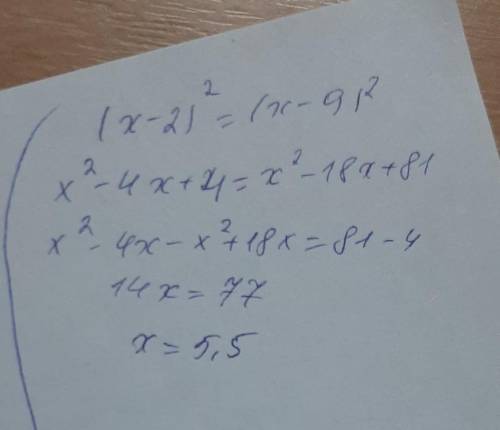 (x-2)² = (x-9)²
x²-4x+4=x²-18x+81
x²-4x-x²+18x=81-4
14x=77
x=5,5